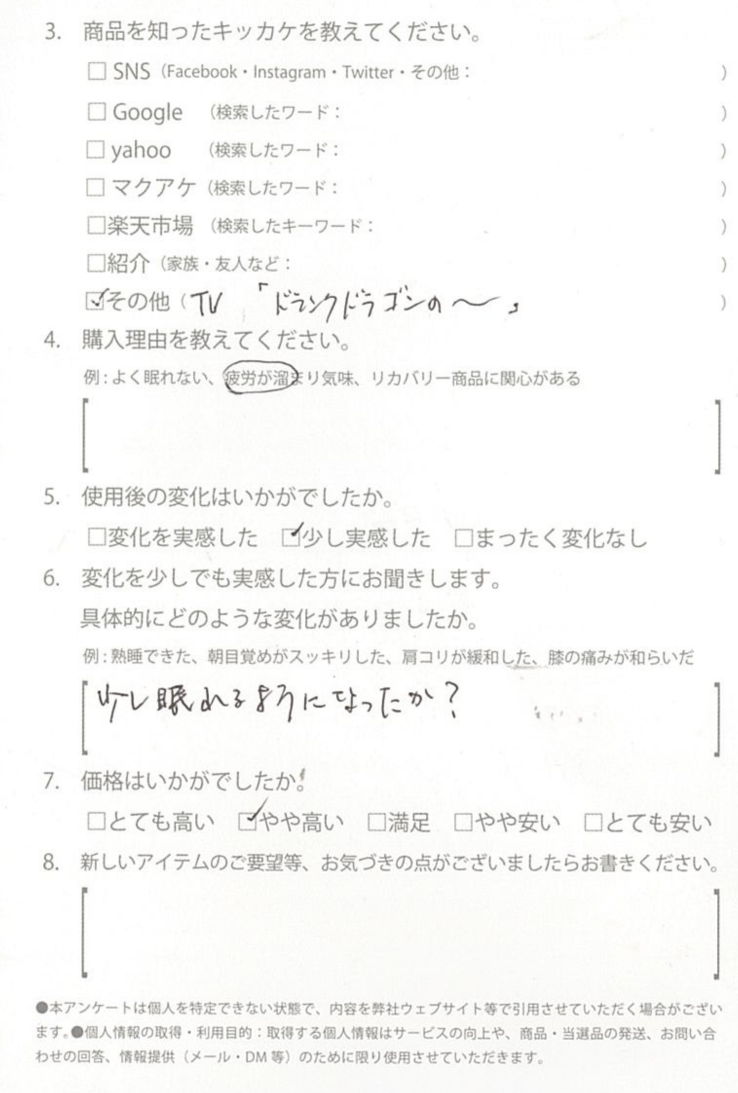 3. 商品を知ったキッカケを教えてください。
□ SNS（Facebook・Instagram・Twitter・その他： ）
□ Google （検索したワード： ）
□ yahoo （検索したワード： ）
□ マクアケ（検索したワード： ）
□楽天市場 （検索したキーワード： ）
□紹介（家族・友人など： ）
☑その他（ TV 「ドランクドラゴンの〜」 ）
4. 購入理由を教えてください。
例：よく眠れない、疲労が溜まり気味、リカバリー商品に関心がある
5. 使用後の変化はいかがでしたか。
□変化を実感した ☑少し実感した □まったく変化なし
6. 変化を少しでも実感した方にお聞きします。
具体的にどのような変化がありましたか。
例：熟睡できた、朝目覚めがスッキリした、肩コリが緩和した、膝の痛みが和らいだ
少し眠れるようになったか？
7. 価格はいかがでしたか。
□とても高い ☑やや高い □満足 □やや安い □とても安い
8. 新しいアイテムのご要望等、お気づきの点がございましたらお書きください。
●本アンケートは個人を特定できない状態で、内容を弊社ウェブサイト等で引用させていただく場合がござい
ます。●個人情報の取得・利用目的：取得する個人情報はサービスの向上や、商品・当選品の発送、お問い合
わせの回答、情報提供（メール・DM 等）のために限り使用させていただきます。